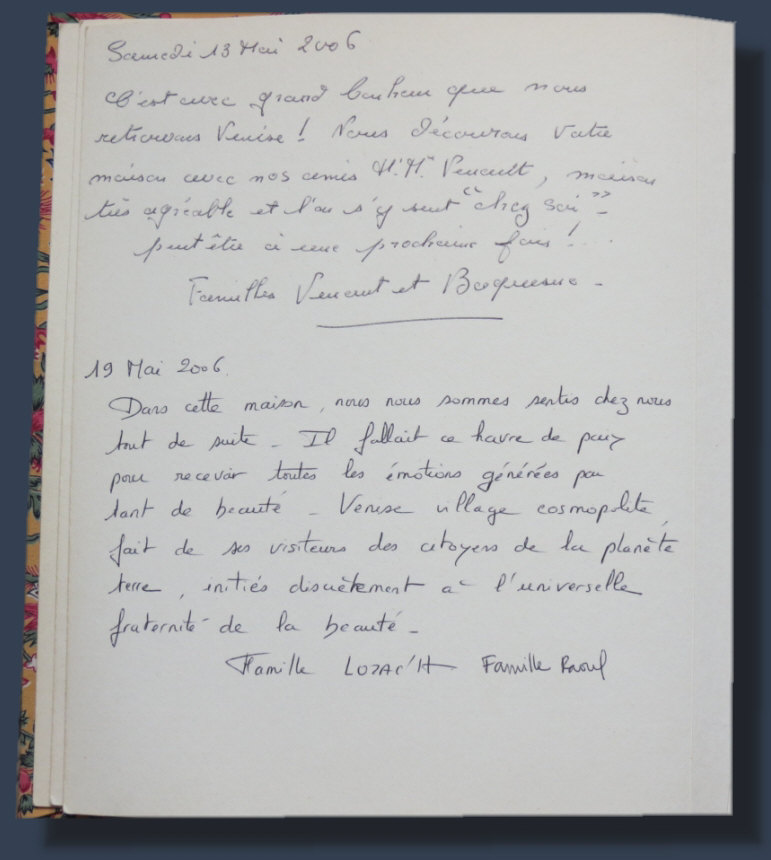 Samedi 13 Mai 2006
C'est avec grand bonheur que nous
retrouvons Venise ! Nous découvrons votre
maison avec nos amis M. Mme Venault, maison
très agréable et l'on s'y sent "chez soi" -
peut être à une prochaine fois ! ...
Familles Venault et -
19 Mai 2006.
Dans cette maison, nous nous sommes sentis chez nous
tout de suite - Il fallait ce havre de paix
pour recevoir toutes les émotions générées par
tant de beauté - Venise village cosmopolite,
fait de ses visiteurs des citoyens de la planète
terre, initiés discrètement à l'universelle
fraternité de la beauté -
Famille LOZAC'H Famille Raoul